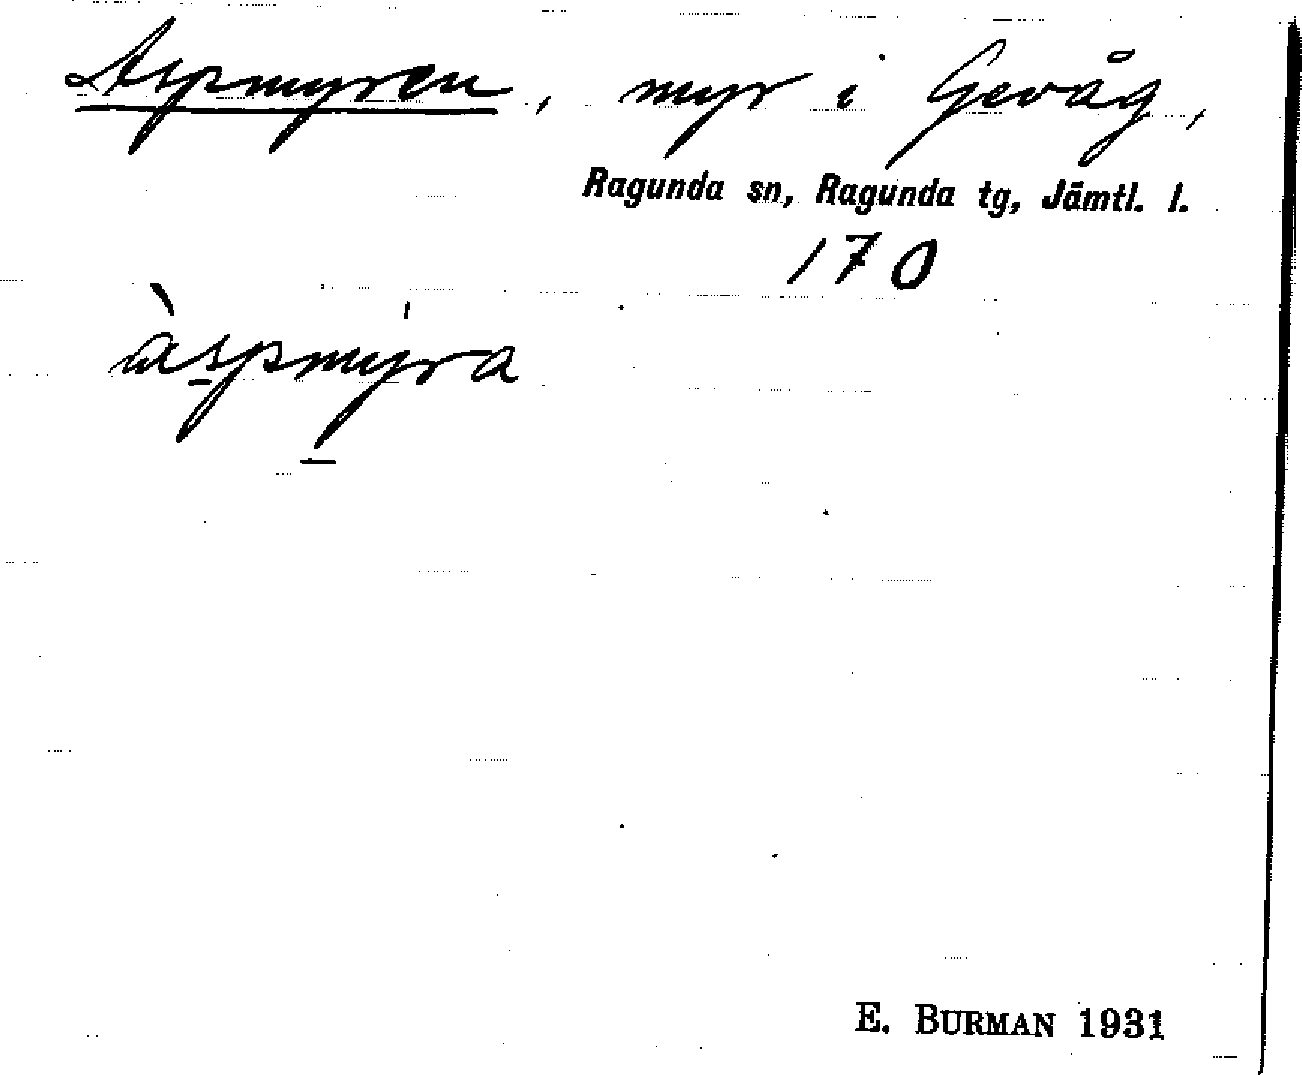 Aspmyren, myr i Gevåg,
Ragunda sn, Ragunda tg, Jämtl. l.
170
àspmýra
E. BURMAN 1931